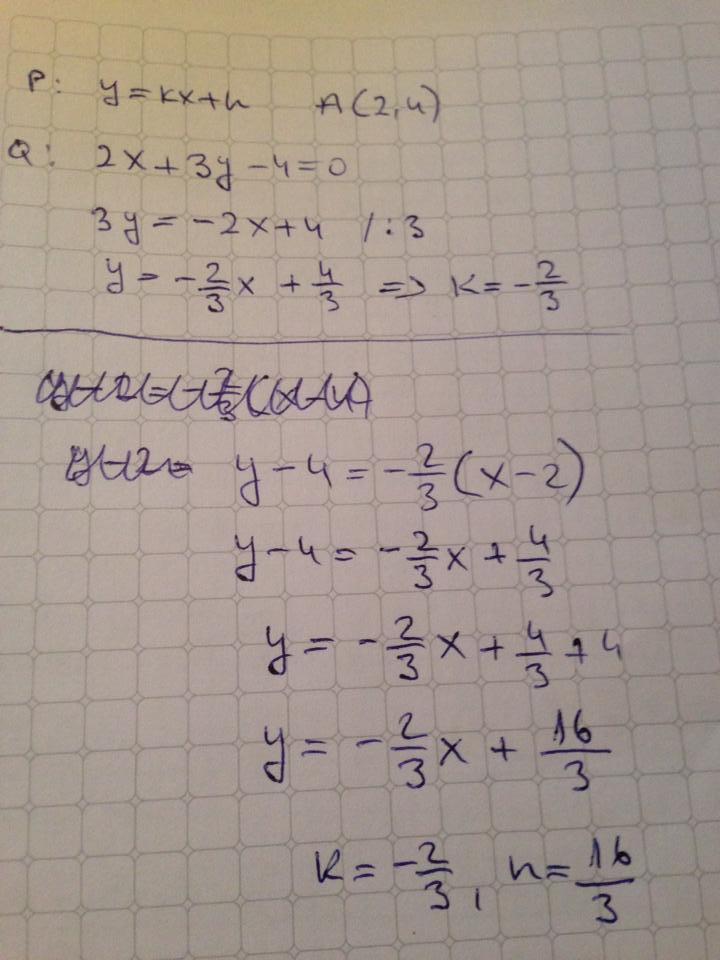 P: y=kx+n A(2,4)
Q: 2x+3y-4=0
3y=-2x+4 /:3
y=-2/3x+4/3 => K=-2/3
y-2= y-4=-2/3(x-2)
y-4=-2/3x+4/3
y=-2/3x+4/3+4
y=-2/3x+16/3
K=-2/3, n=16/3